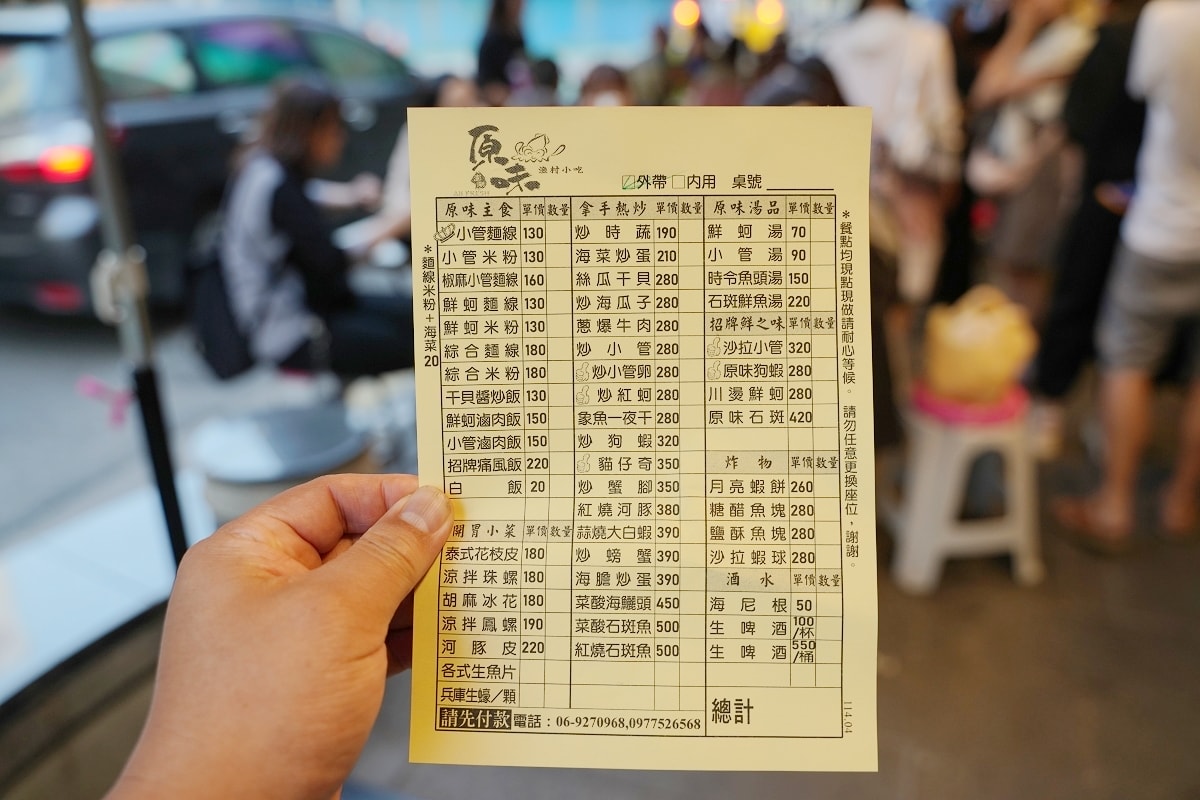 原味
漁村小吃
外帶 內用 桌號
原味主食 單價 數量
小管麵線 130
小管米粉 130
椒麻小管麵線 160
鮮蚵麵線 130
鮮蚵米粉 130
綜合麵線 180
綜合米粉 180
干貝醬炒飯 130
鮮蚵滷肉飯 150
小管滷肉飯 150
招牌痛風飯 220
白飯 20
開胃小菜 單價 數量
泰式花枝皮 180
涼拌珠螺 180
胡麻冰花 180
涼拌鳳螺 190
河豚皮 220
各式生魚片
兵庫生蠔/顆
拿手熱炒 單價 數量
炒時蔬 190
海菜炒蛋 210
絲瓜干貝 280
炒海瓜子 280
蔥爆牛肉 280
炒小管 280
炒小管卵 280
炒紅蚵 280
象魚一夜干 280
炒狗蝦 320
貓仔奇 350
炒蟹腳 350
紅燒河豚 380
蒜燒大白蝦 390
炒螃蟹 390
海膽炒蛋 390
菜酸海鱺頭 450
菜酸石斑魚 500
紅燒石斑魚 500
原味湯品 單價 數量
鮮蚵湯 70
小管湯 90
時令魚頭湯 150
石斑鮮魚湯 220
招牌鮮之味 單價 數量
沙拉小管 320
原味狗蝦 280
川燙鮮蚵 280
原味石斑 420
炸物 單價 數量
月亮蝦餅 260
糖醋魚塊 280
鹽酥魚塊 280
沙拉蝦球 280
酒水 單價 數量
海尼根 50
生啤酒 100/杯
生啤酒 550/桶
總計
請先付款 電話：06-9270968,0977526568
*麵線米粉+海菜20
*餐點均現點現做請耐心等候。 請勿任意更換座位，謝謝。
114.04